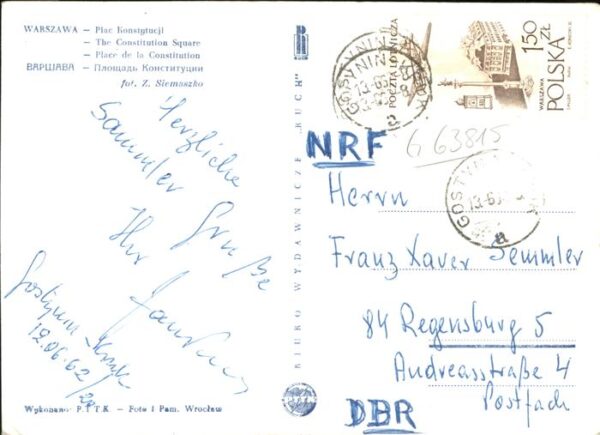 WARSZAWA – Plac Konstytucji
– The Constitution Square
– Place de la Constitution
ВАРШАВА – Площадь Конституции
fot. Z. Siemaszko
Herzliche
Sammler Grüße
Ihr
12.06.62
Wykonano P.T.T.K. – Foto i Pam. Wrocław
BIURO WYDAWNICZE "RUCH"
PTTK
1.50 ZŁ
POLSKA
WARSZAWA
POCZTA LOTNICZA
GOSTYNIN
GOSTYNIN
NRF
G 63815
Herrn
Franz Xaver Semmler
84 Regensburg 5
Andreasstraße 4
Postfach
DBR